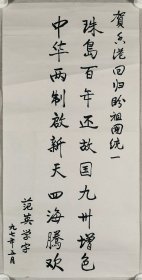 賀香港回归盼祖国统一
珠島百年还故国九州增色
中华两制啟新天四海騰欢
范英学字
九七年五月